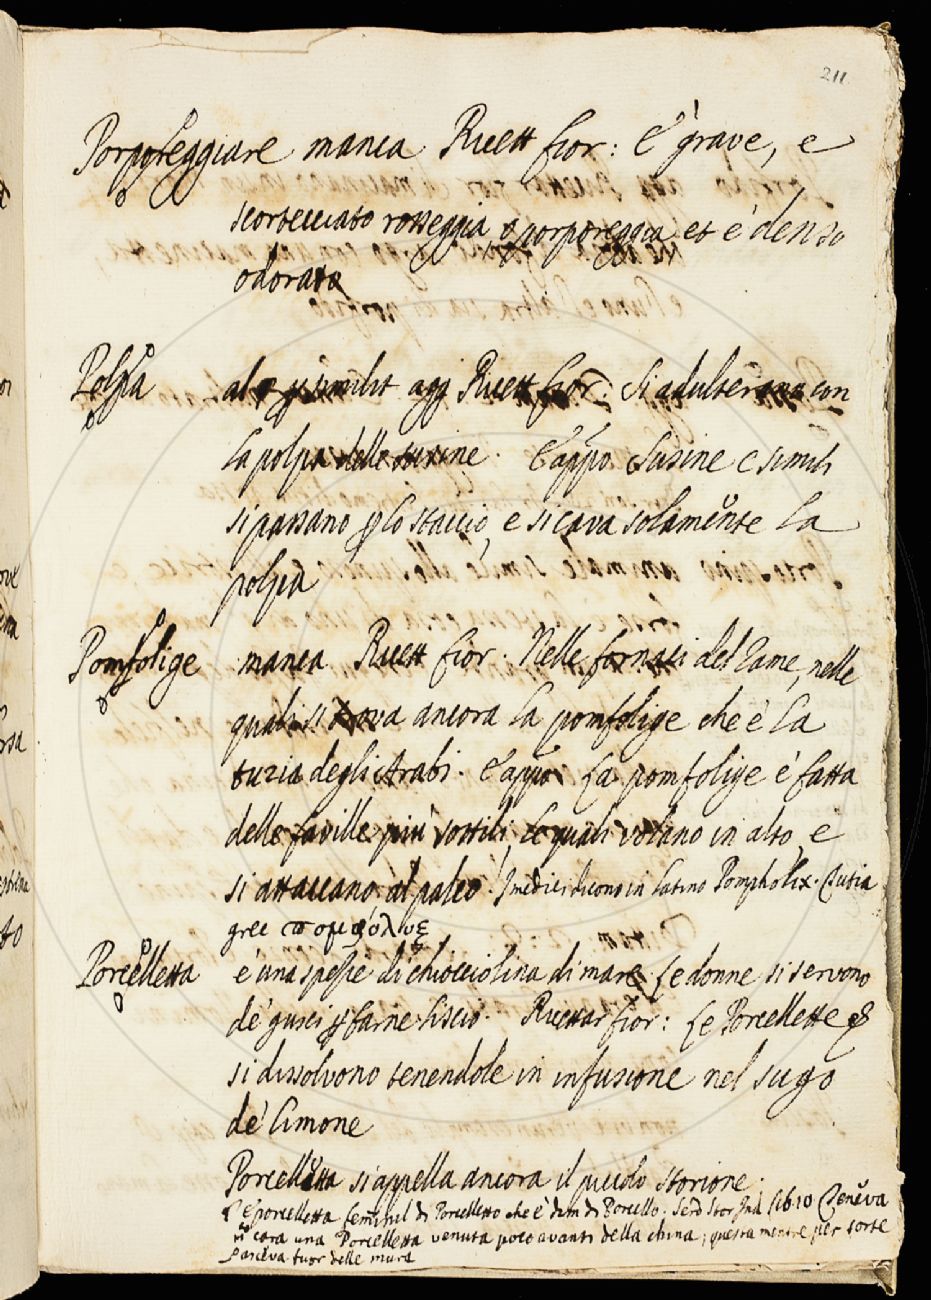 211
Porporeggiare manca Ricett fior: E' grave, e
scortecciato rosseggia o porporeggia et è denso
odorato
Polpa al § similit agg Ricett fior. Si adultera con
la polpa delle susine. E appo Susine e simili
si passano ꝑ lo staccio, e si cava solamente la
polpa
Pomfolige manca Ricett fior. Nelle fornaci del rame, nelle
quali si trova ancora la pomfolige che è la
tuzia degli Arabi. E appo La pomfolige è fatta
delle faville più sottili, le quali volano in alto, e
si attaccano al palco. I medici dicono in latino Pompholix. Tutia
grec πομφόλυξ
Porcelletta è una spezie di chiocciolina di mare. Le donne si servono
de' gusci ꝑ farne liscio. Ricettar fior: Le Porcellette
si dissolvono tenendole in infusione nel sugo
de' limone
Porcelletta si appella ancora il piccolo storione.
E porcelletta femminil di Porcelletto che è dim di Porcello. Serd Stor Ind 16.10 Teneva
cara una Porcelletta venuta poco avanti della china; questa mentre per sorte
pasceva fuor delle mura